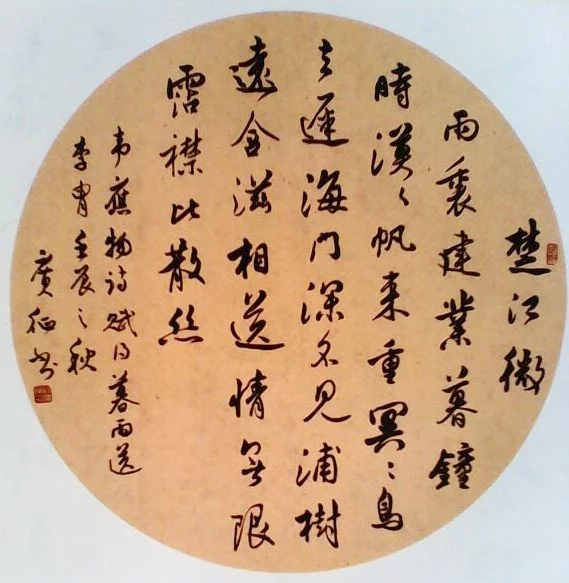 楚江微
雨裏建業暮鐘
時漠〻帆来重冥〻鳥
去遲海门深不見浦樹
遠含滋相送情無限
霑襟比散丝
韦應物诗赋得暮雨送
李胄壬辰之秋
廣征书